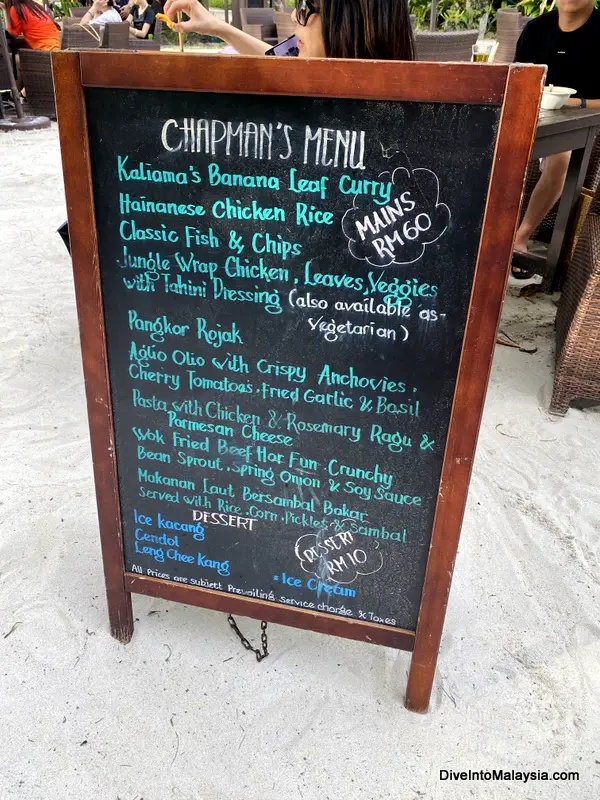 CHAPMAN'S MENU
Kaliama's Banana Leaf Curry
Hainanese Chicken Rice
MAINS
RM 60
Classic Fish & Chips
Jungle Wrap Chicken, Leaves, Veggies
with Tahini Dressing (also available as-
Vegetarian)
Pangkor Rojak
Aglio Olio with Crispy Anchovies,
Cherry Tomatoes, Fried Garlic & Basil
Pasta with Chicken & Rosemary Ragu &
Parmesan Cheese
Wok Fried Beef Hor Fun Crunchy
Bean Sprout, Spring Onion & Soy Sauce
Makanan Laut Bersambal Bakar
Served with Rice, Corn, Pickles & Sambal
DESSERT
Ice kacang
Cendol
Leng Chee Kang
DESSERT
RM 10
Ice Cream
All Prices are subjett Prevailing service charge & Taxes
DiveIntoMalaysia.com